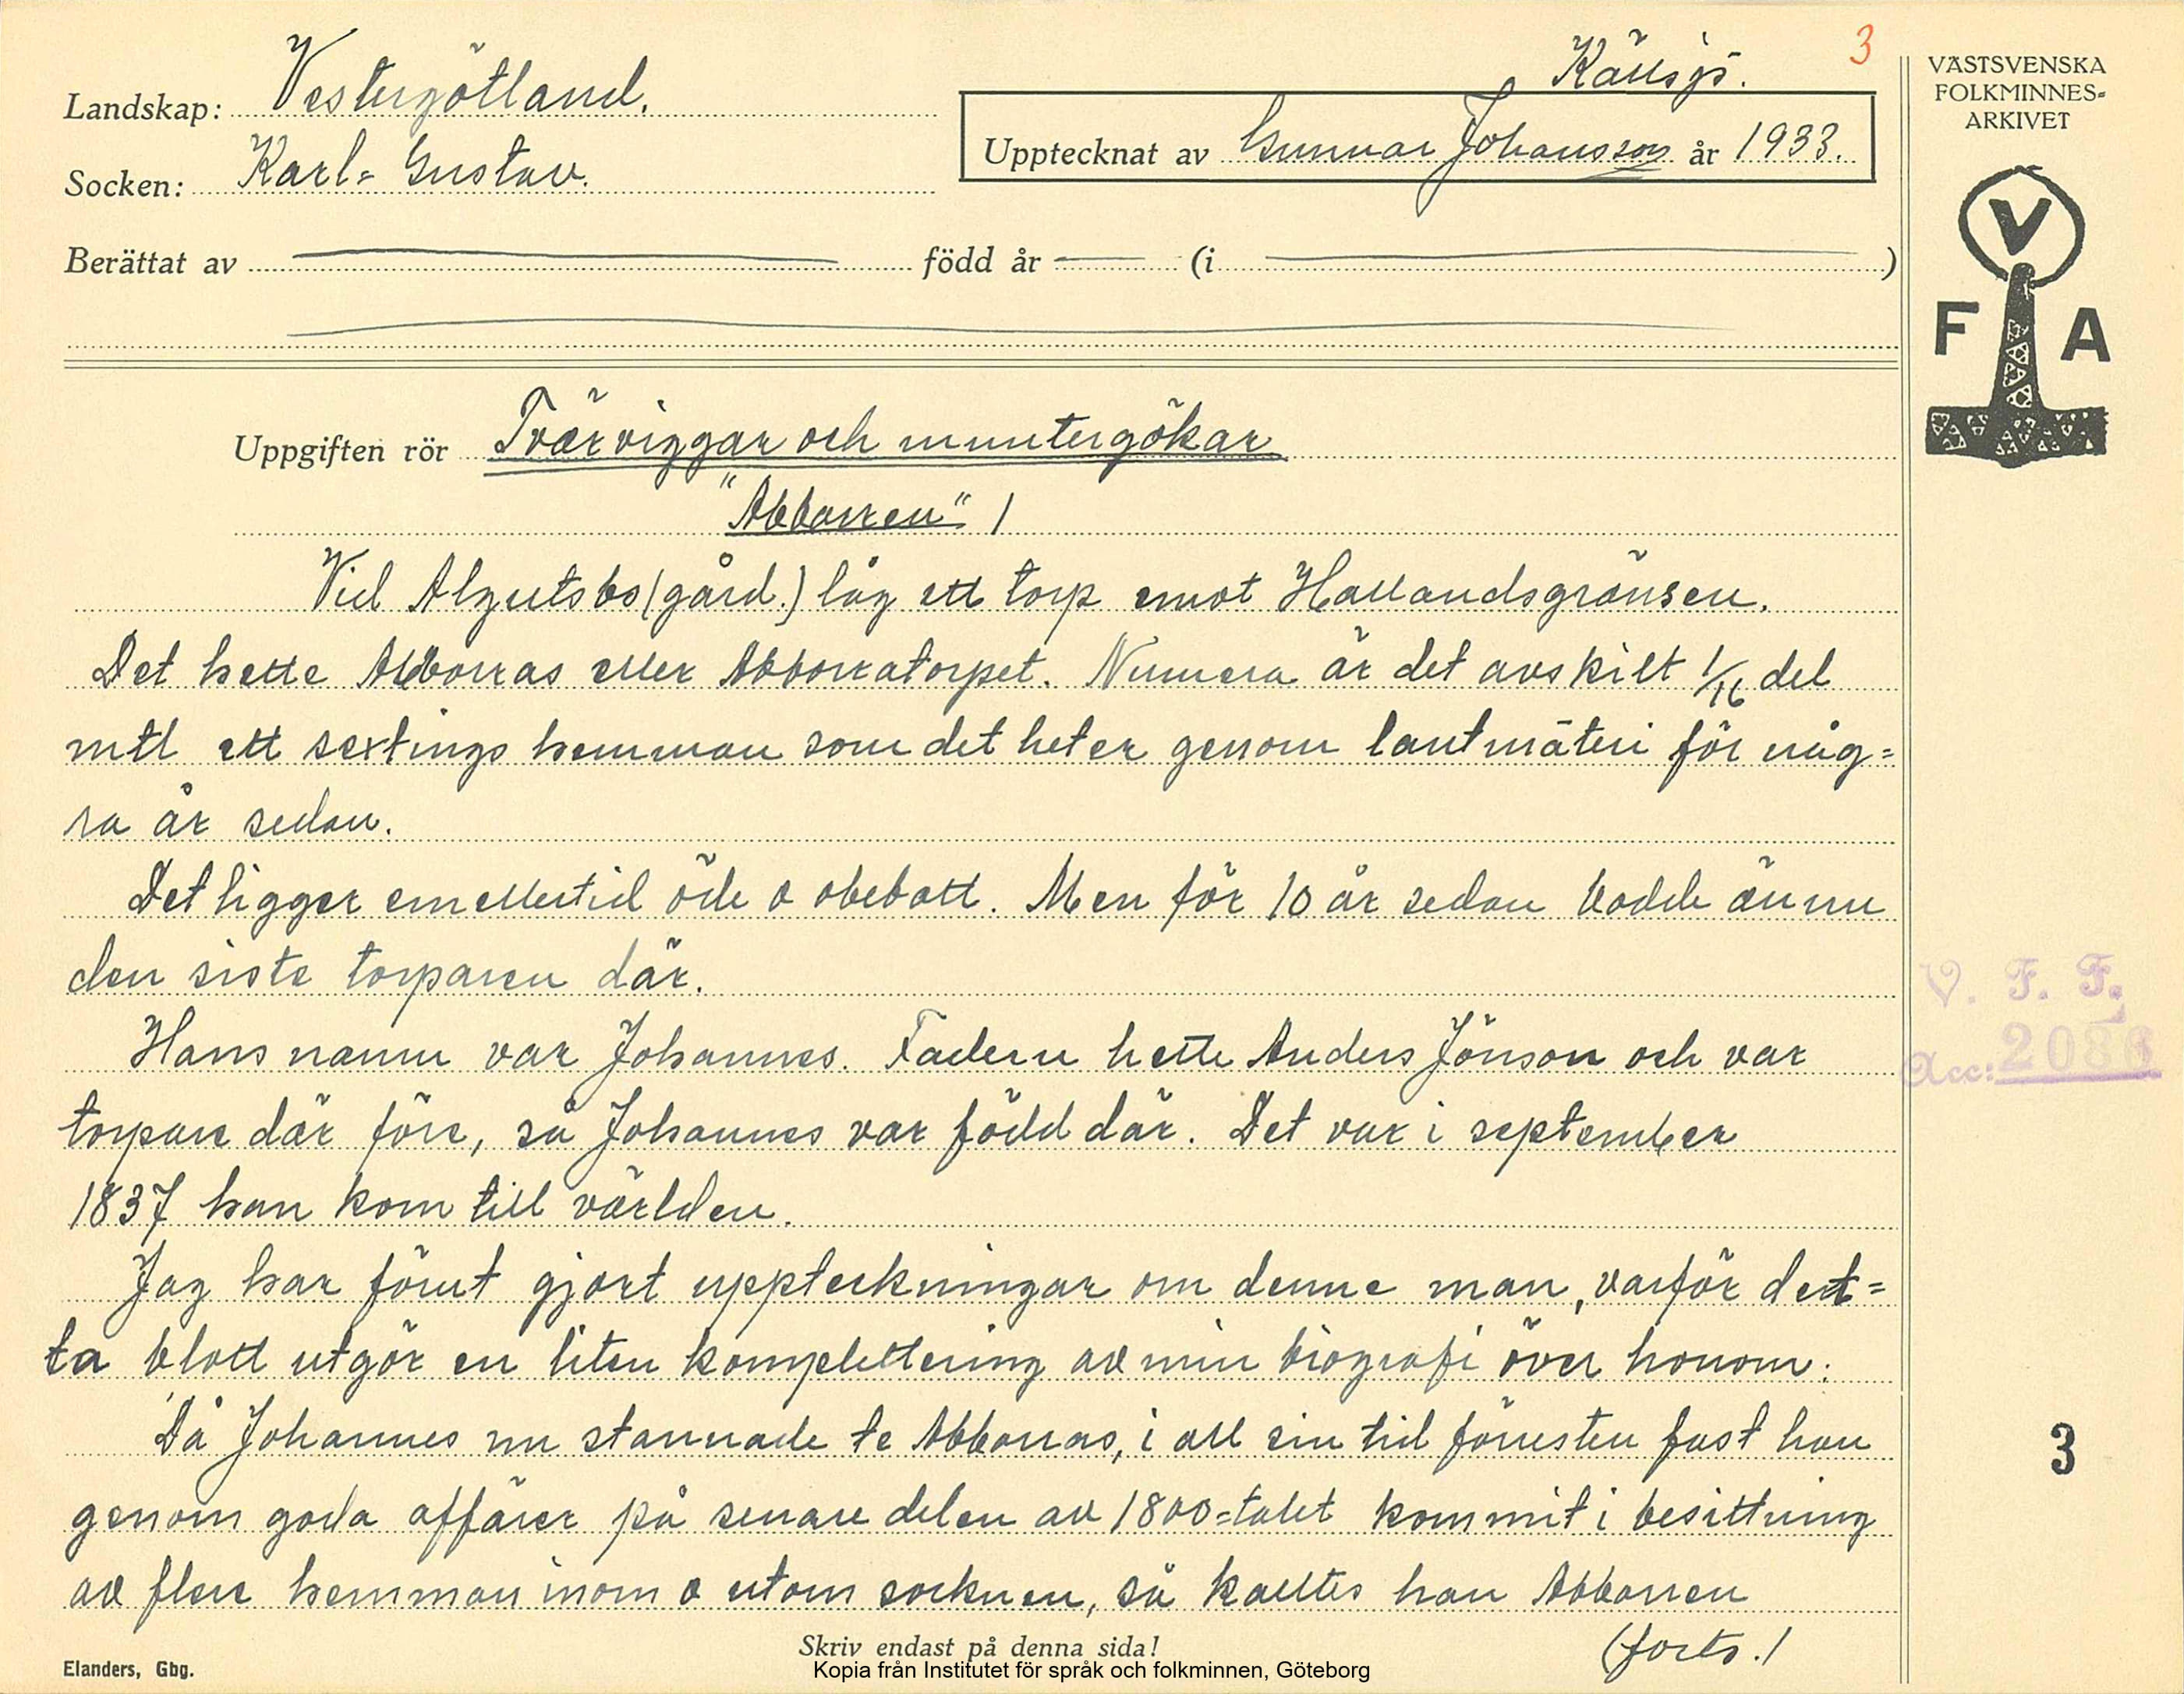 3
Källsjö.
Landskap: Vestergötland.
Socken: Karl= Gustav.
Upptecknat av Gunnar Johansson år 1933.
Berättat av född år (i )
VÄSTSVENSKA
FOLKMINNES=
ARKIVET
V
F A
Uppgiften rör Tvärviggar och muntergökar
"Abborren" /
Vid Algutsbo (gård.) låg ett torp emot Hallandsgränsen.
Det hette Abborras eller Abborratorpet. Numera är det avskilt 1/16 del
mtl ett sextings hemman som det heter genom lantmäteri för någ=
ra år sedan.
Det ligger emellertid öde o obebott. Men för 10 år sedan bodde ännu
den siste torparen där.
Hans namn var Johannes. Fadern hette Anders Jönson och var
torpare där före, så Johannes var född där. Det var i september
1837 han kom till världen.
Jag har förut gjort uppteckningar om denne man, varför det=
ta blott utgör en liten komplettering av min biografi över honom.
Då Johannes nu stannade te Abborras, i all sin tid förresten fast han
genom goda affärer på senare delen av 1800=talet kommit i besittning
av flere hemman inom o utom socknen, så kalltes han Abborren
(forts./
V. F. F.
Acc: 2086
3
Skriv endast på denna sida!
Elanders, Gbg.
Kopia från Institutet för språk och folkminnen, Göteborg